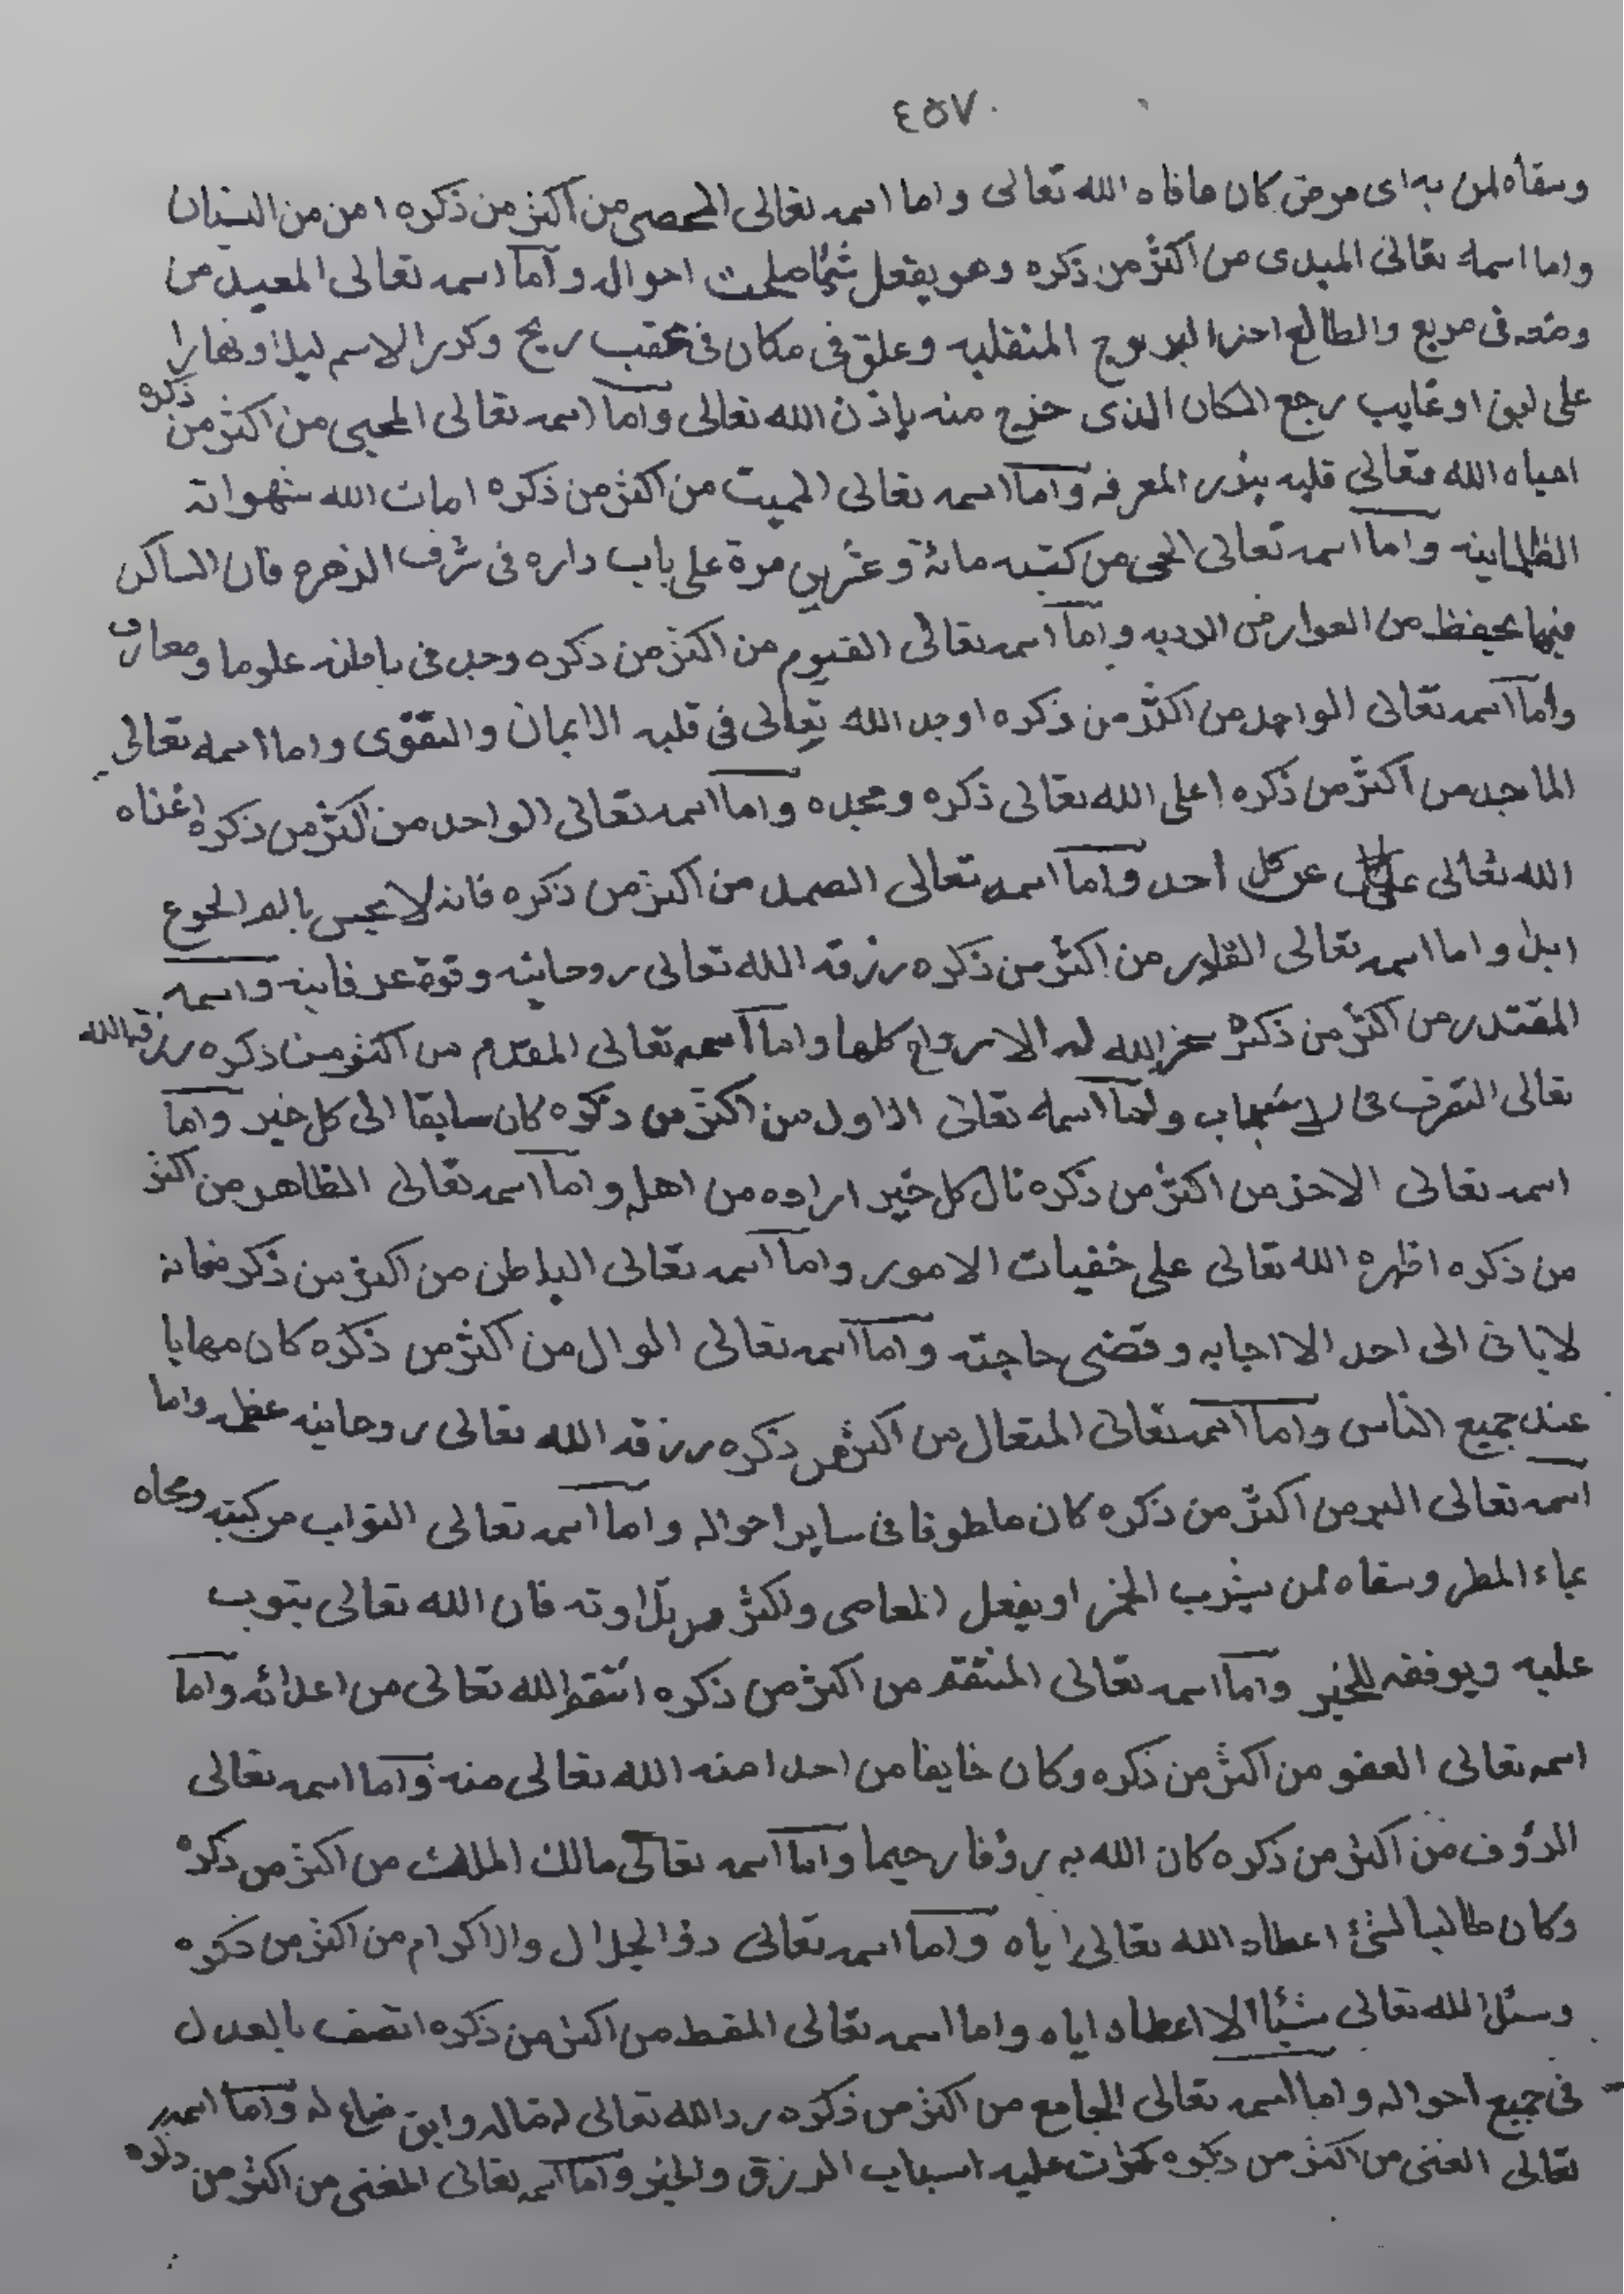 ٤٥٧
وسقاه لمن به اى مرض كان عافاه الله تعالى واما اسمه تعالى المحصى من اكثر من ذكره امن من النسيان
واما اسمه تعالى المبدى من اكثر من ذكره وهو يفعل شيئا صلحت احواله واما اسمه تعالى المعيد من
وضعه فى مربع والطالع احد البروج المنقلبه وعلق فى مكان فى عقب ريح وكرر الاسم ليلا ونهارا
على ابق او غايب رجع المكان الذى خرج منه باذن الله تعالى واما اسمه تعالى المحيى من اكثر من ذكره
احياه الله تعالى قلبه بنور المعرفه واما اسمه تعالى المميت من اكثر من ذكره امات الله شهواته
الظلمانيه واما اسمه تعالى الحى من كتبه مائة وعشرين مرة على باب داره فى شرف الزهره فان الساكن
فيها يحفظ من العوارض الرديه واما اسمه تعالى القيوم من اكثر من ذكره وجد فى باطنه علوما ومعارف
واما اسمه تعالى الواجد من اكثر من ذكره اوجد الله تعالى فى قلبه الايمان والتقوى واما اسمه تعالى
الماجد من اكثر من ذكره اعلى الله تعالى ذكره ومجده واما اسمه تعالى الواحد من اكثر من ذكره اغناه
الله تعالى عن كل احد واما اسمه تعالى الصمد من اكثر من ذكره فانه لا يحس بالم الجوع
ابدا واما اسمه تعالى القادر من اكثر من ذكره رزقه الله تعالى روحانيه وقوة عرفانيه واسمه
المقتدر من اكثر من ذكره سخر الله له الارواح كلها واما اسمه تعالى المقدم من اكثر من ذكره رزقه الله
تعالى التصرف فى الاسباب واما اسمه تعالى الاول من اكثر من ذكره كان سابقا الى كل خير واما
اسمه تعالى الاخر من اكثر من ذكره نال كل خير اراده من اهله واما اسمه تعالى الظاهر من اكثر
من ذكره اظهره الله تعالى على خفيات الامور واما اسمه تعالى الباطن من اكثر من ذكره فانه
لا ياتى الى احد الا اجابه وقضى حاجته واما اسمه تعالى الوال من اكثر من ذكره كان مهابا
عند جميع الناس واما اسمه تعالى المتعال من اكثر من ذكره رزقه الله تعالى روحانيه عظمه واما
اسمه تعالى البر من اكثر من ذكره كان ملطوفا فى ساير احواله واما اسمه تعالى التواب من كتبه ومحاه
بماء المطر وسقاه لمن يشرب الخمر او يفعل المعاصى واكثر من تلاوته فان الله تعالى يتوب
عليه ويوفقه للخير واما اسمه تعالى المنتقم من اكثر من ذكره انتقم الله تعالى من اعدائه واما
اسمه تعالى العفو من اكثر من ذكره وكان خايفا من احد امنه الله تعالى منه واما اسمه تعالى
الرؤف من اكثر من ذكره كان الله به رؤفا رحيما واما اسمه تعالى مالك الملك من اكثر من ذكره
وكان طالبا لشئ اعطاه الله تعالى اياه واما اسمه تعالى ذو الجلال والاكرام من اكثر من ذكره
وسئل الله تعالى شيئا الا اعطاه اياه واما اسمه تعالى المقسط من اكثر من ذكره اتصف بالعدل
فى جميع احواله واما اسمه تعالى الجامع من اكثر من ذكره رد الله تعالى له ضاله وابق ضاع له واما اسمه
تعالى الغنى من اكثر من ذكره كثرت عليه اسباب الرزق والخير واما اسمه تعالى المغنى من اكثر من ذكره